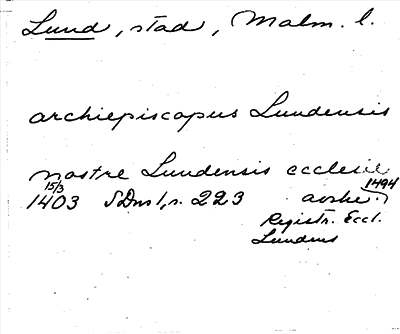 Lund, stad, Malm. l.
archiepiscopus Lundensis
nostre Lundensis ecclesie
15/3 1494
1403 SDns 1, s. 223 avskr.
Registr. Eccl.
Lundens